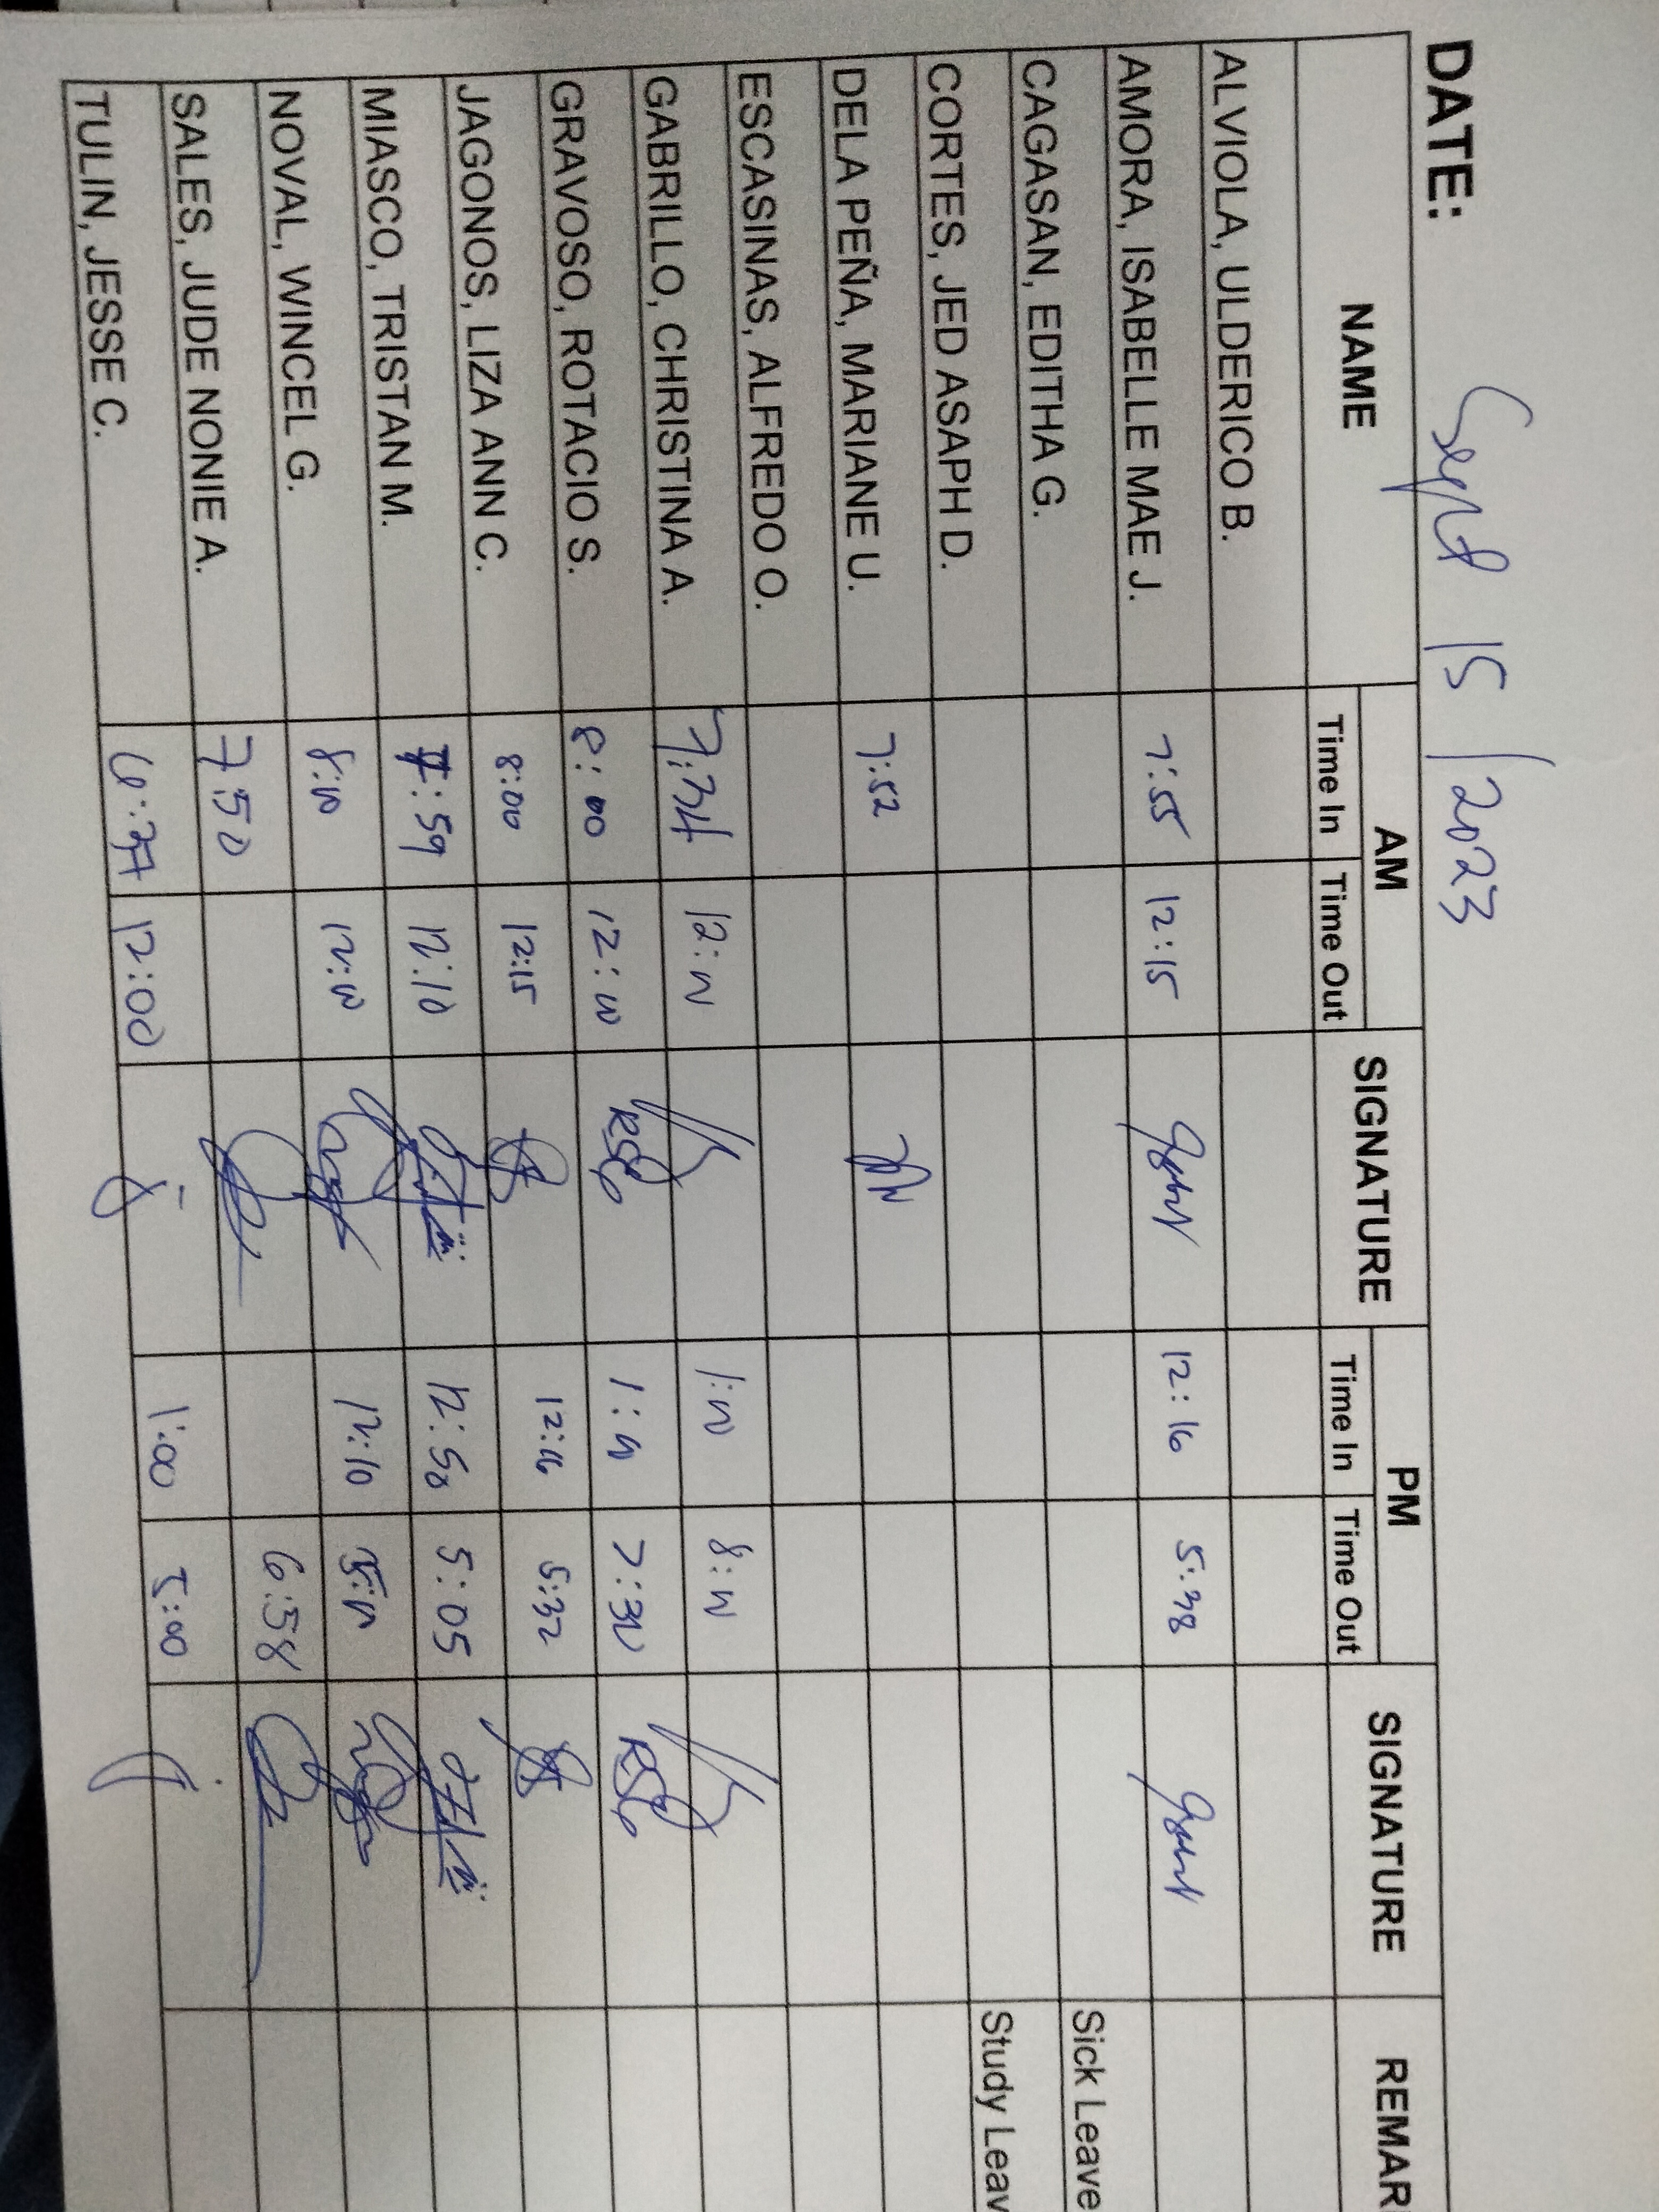 DATE: Sept 15 / 2023
NAME AM SIGNATURE PM SIGNATURE REMAR
Time In Time Out Time In Time Out
ALVIOLA, ULDERICO B.
AMORA, ISABELLE MAE J. 7:55 12:15 12:16 5:38
CAGASAN, EDITHA G. Sick Leave
CORTES, JED ASAPH D. Study Leav
DELA PEÑA, MARIANE U. 7:52
ESCASINAS, ALFREDO O.
GABRILLO, CHRISTINA A. 7:34 12:00 1:00 8:00
GRAVOSO, ROTACIO S. 8:00 12:00 1:00 7:30
JAGONOS, LIZA ANN C. 8:00 12:15 12:16 5:32
MIASCO, TRISTAN M. 7:59 12:10 12:50 5:05
NOVAL, WINCEL G. 8:00 12:00 12:10 5:00
SALES, JUDE NONIE A. 7:50 6:58
TULIN, JESSE C. 12:00 1:00 5:00